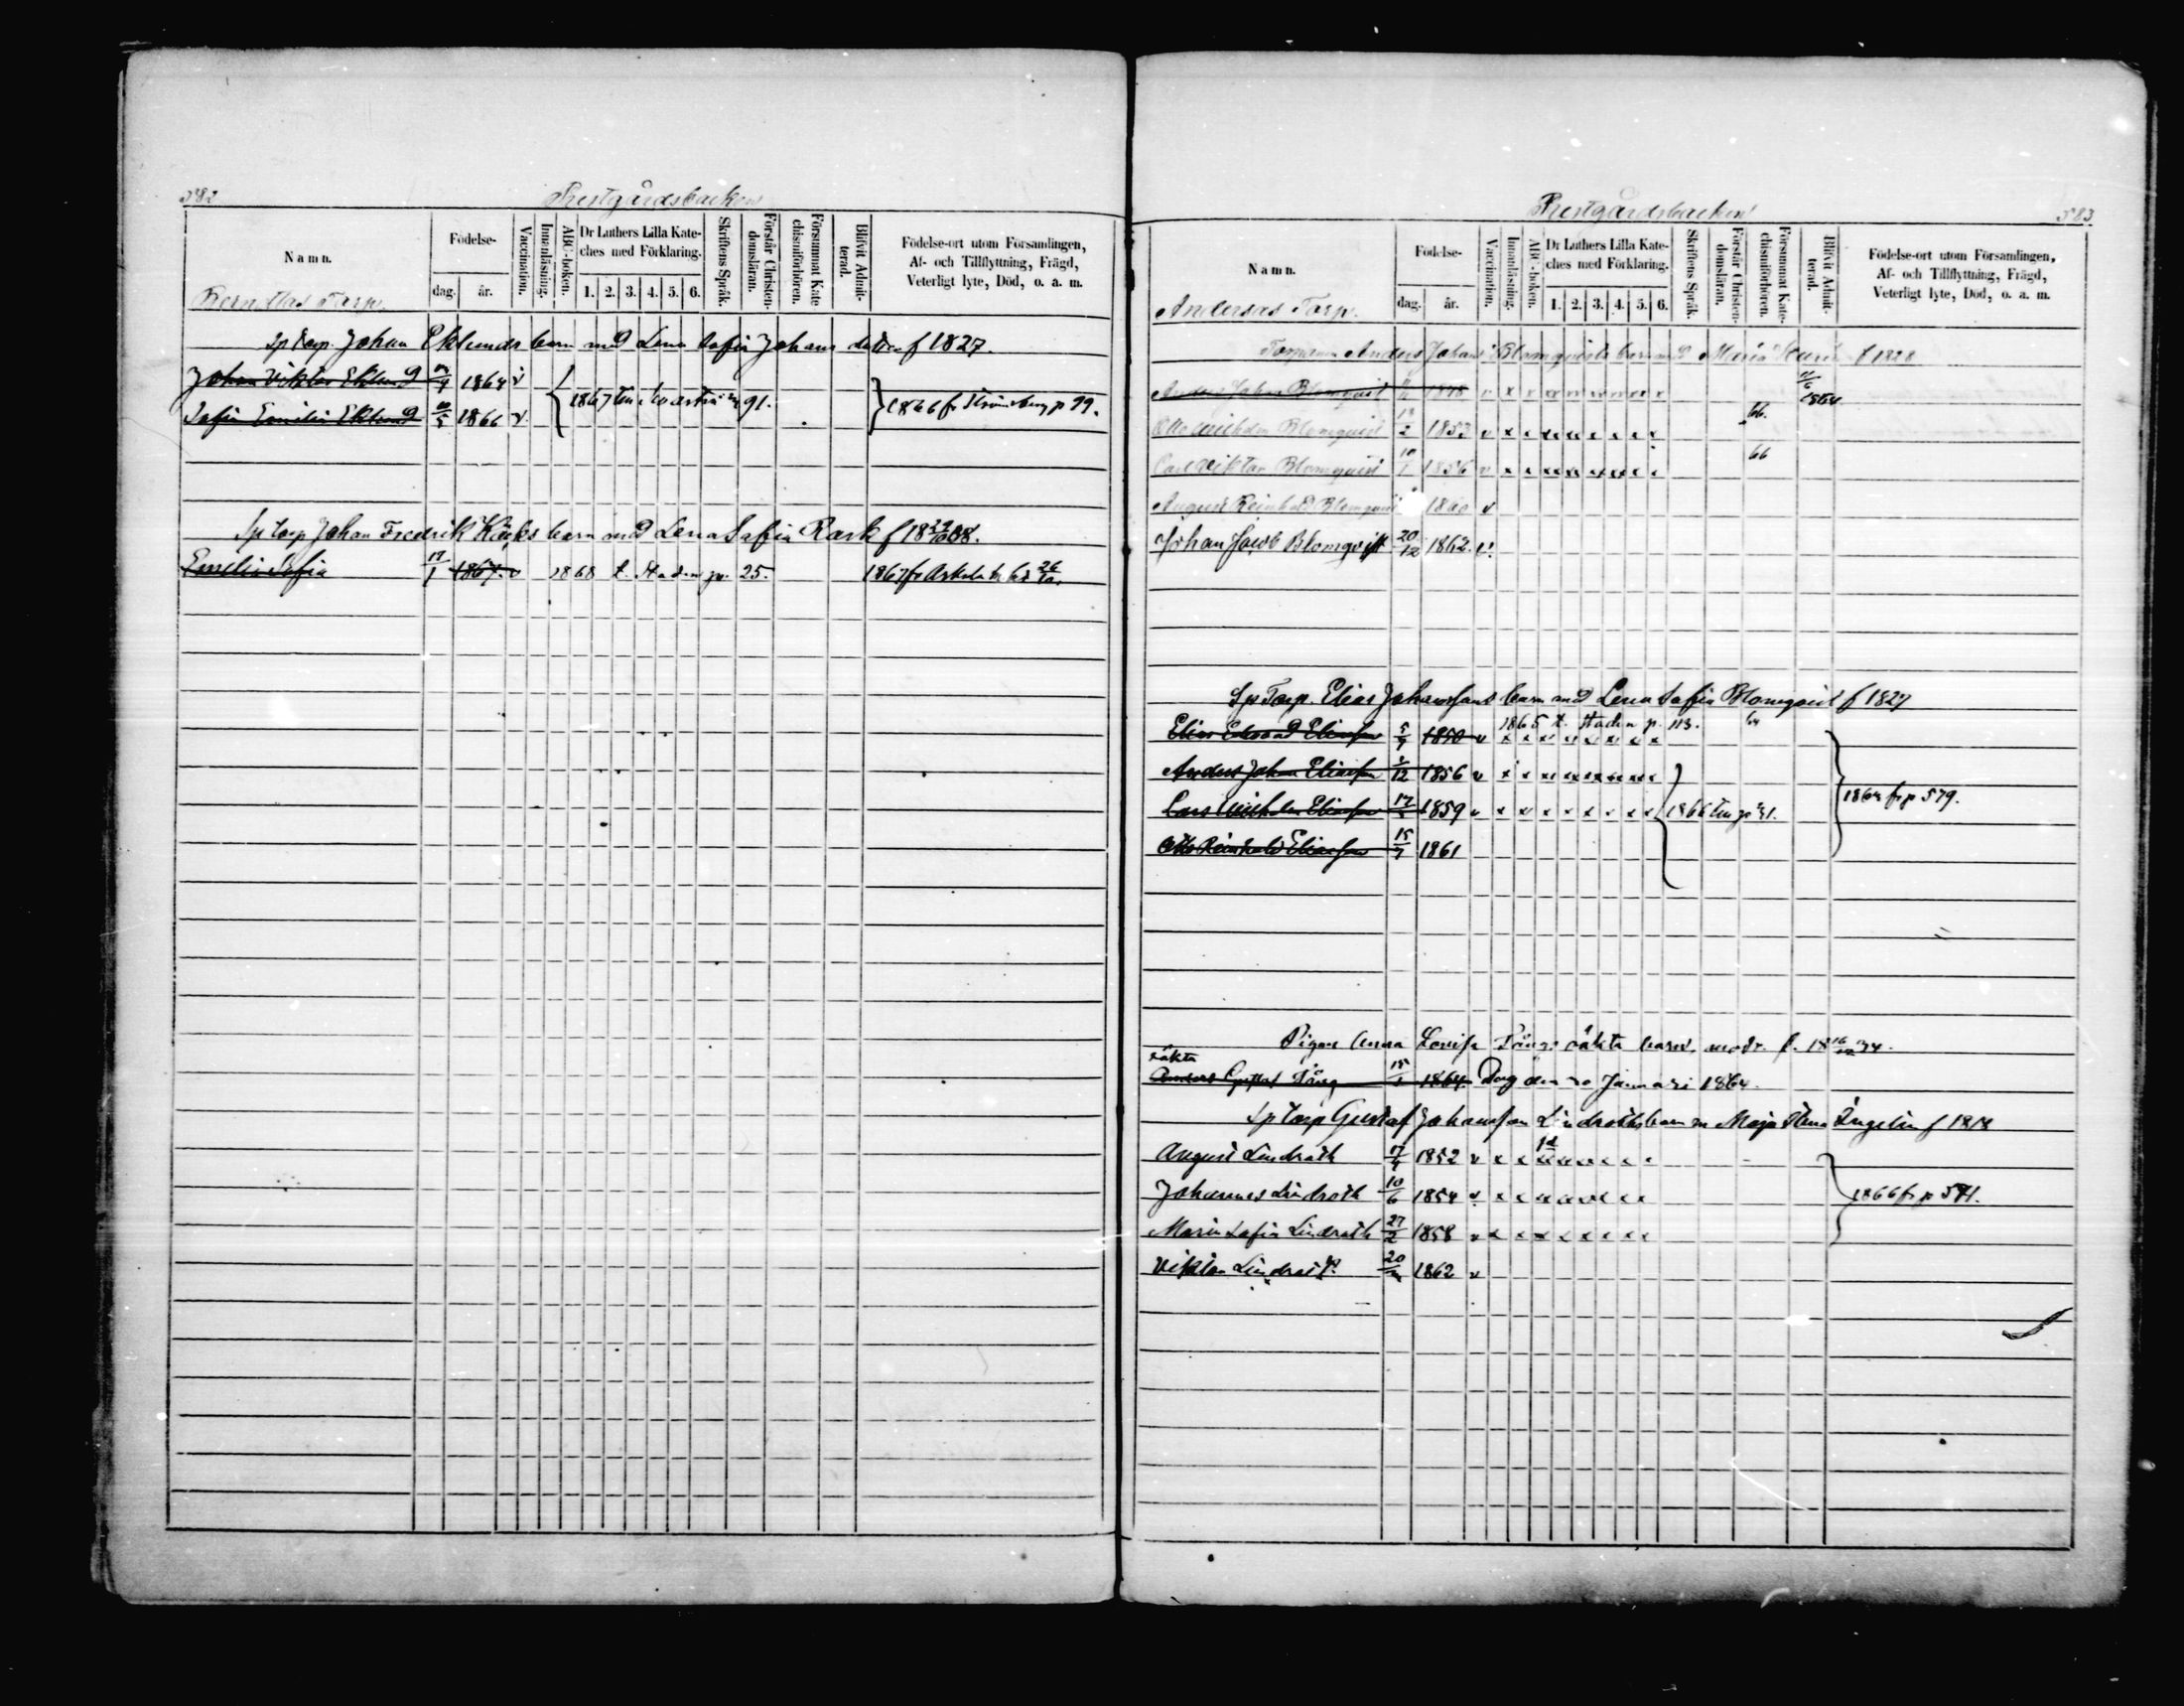 382
Prestgårdsbacken
Namn.
Födelse-
dag. år.
Vaccination.
Innanläsning.
ABC-boken.
Dr Luthers Lilla Kate-
ches med Förklaring.
1. 2. 3. 4. 5. 6.
Skriftens Språk.
Förstår Christen-
domsläran.
Försummat Kate-
chismiförhören.
Blifvit Admit-
terad.
Födelse-ort utom Församlingen,
Af- och Tillflyttning, Frägd,
Veterligt lyte, Död, o. a. m.
Torp.
Sp torp. Johan Eklunds barn med Lena Sofia Johans dotter f 1827.
Johan Viktor Eklund 1864 v
Sofia Emilia Eklund 1866 v 1867 91. 1866 fr p 99.
Sp torp Johan Fredrik barn med Lena Sofia Rask f
Emelia Sofia 17/1 1867. v 1868 t. Staden p. 25. 1867 fr Askola 26/10.
583
Prestgårdsbacken
Namn.
Födelse-
dag. år.
Vaccination.
Innanläsning.
ABC-boken.
Dr Luthers Lilla Kate-
ches med Förklaring.
1. 2. 3. 4. 5. 6.
Skriftens Språk.
Förstår Christen-
domsläran.
Försummat Kate-
chismiförhören.
Blifvit Admit-
terad.
Födelse-ort utom Församlingen,
Af- och Tillflyttning, Frägd,
Veterligt lyte, Död, o. a. m.
Anderses Torp.
Torparen Anders Johans Blomqvists barn med Maria f 1828
Anders Johan Blomqvist 1848 v x x xx xx x x x x 1864
Otto Wilhelm Blomqvist 1853 v x x xx xx x x x x 66.
Carl Viktor Blomqvist 1856 v x x xx xx xx x x 66
August Reinhold Blomqvist 1860 v
Johan Jacob Blomqvist 20/12 1862. v.
Sp Torp. Elias Johanssons barn med Lena Sofia Blomqvist f 1827
1865 t. Staden p. 113.
Elias Edvard Eliasson 1850 v x x xx xx x x x 64
Anders Johan Eliasson 1/12 1856 v x x xx xx xx xx
Lars Wilhelm Eliasson 1859 v x x x x x x x x 1866 1864 fr p 579.
Otto Reinhold Eliasson 15/7 1861
Pigan Anna Lovisa Tångs oäkta barn, modr. f.
oäkta
Anders Gustaf Tång 1864 Dog den Januari 1864.
Sp torp Gustaf Johansson Lindroths barn m Maja Stina Ingelin f 1818
August Lindroth 17/4 1852 v x x xx xx x x x
Johannes Lindroth 10/6 1854 v x x x x x x x x 1866 fr p 571.
Maria Sofia Lindroth 27/2 1858 v x x x x x x x x
Viktor Lindroth 1862 v